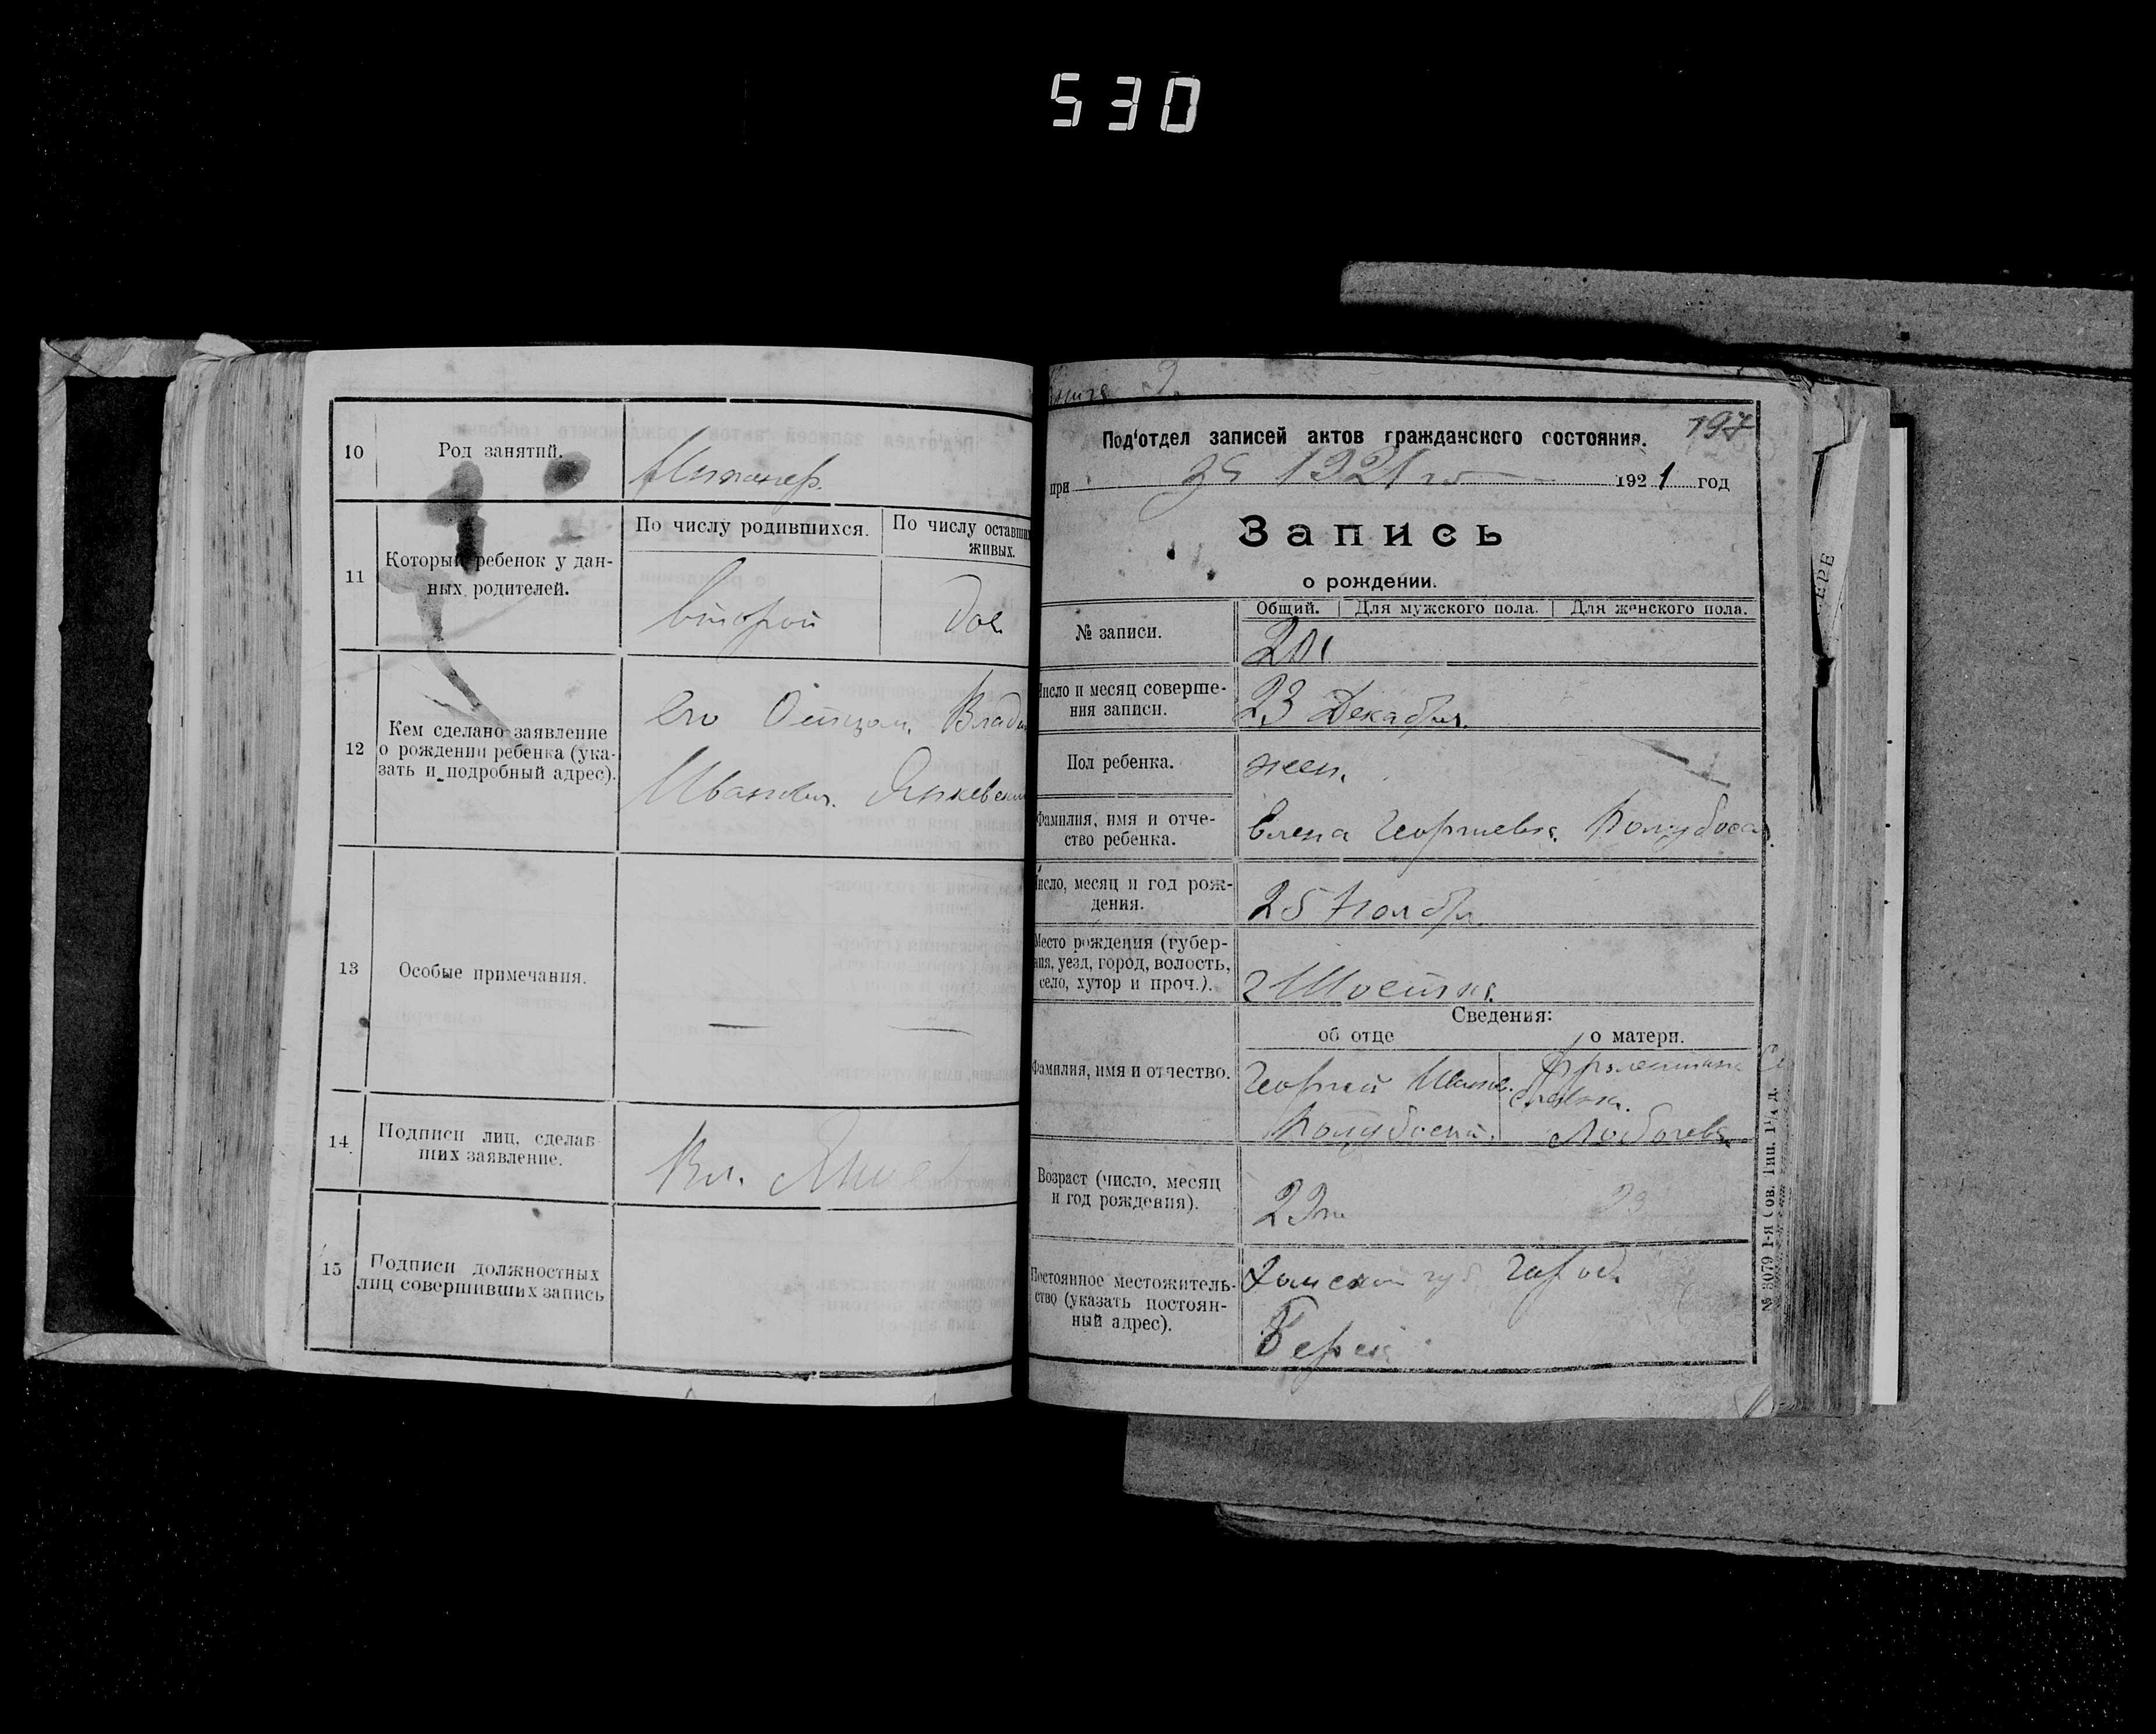 530
10
Род занятий.
11
Который ребенок у дан-
ных родителей.
По числу родившихся.
По числу оставши
живых.
второй
два
12
Кем сделано заявление
о рождении ребенка (ука-
зать и подробный адрес).
его Отцом, Влади
Иванович. Янкевский
13
Особые примечания.
14.
Подписи лиц, сделав-
ших заявление.
Вл.
15
Подписи должностных
лиц совершивших запись
197
Под'отдел записей актов гражданского состояния.
при за 1921 г. 1921 год
Запись
о рождении.
№ записи.
Общий. Для мужского пола. Для женского пола.
201
Число и месяц соверше-
ния записи.
23 Декабря.
Пол ребенка.
жен.
Фамилия, имя и отче-
ство ребенка.
Елена Георгиевна
Число, месяц и год рож-
дения.
25 Ноября
Место рождения (губер-
ния, уезд, город, волость,
село, хутор и проч.).
г Шостка.
Сведения:
об отце о матери.
Фамилия, имя и отчество.
Георгий Иванов.
Возраст (число, месяц
и год рождения).
23
Постоянное местожитель-
ство (указать постоян-
ный адрес).
Томской губ город
№ 3079 1-я Сов. Тип. 1¼ д.